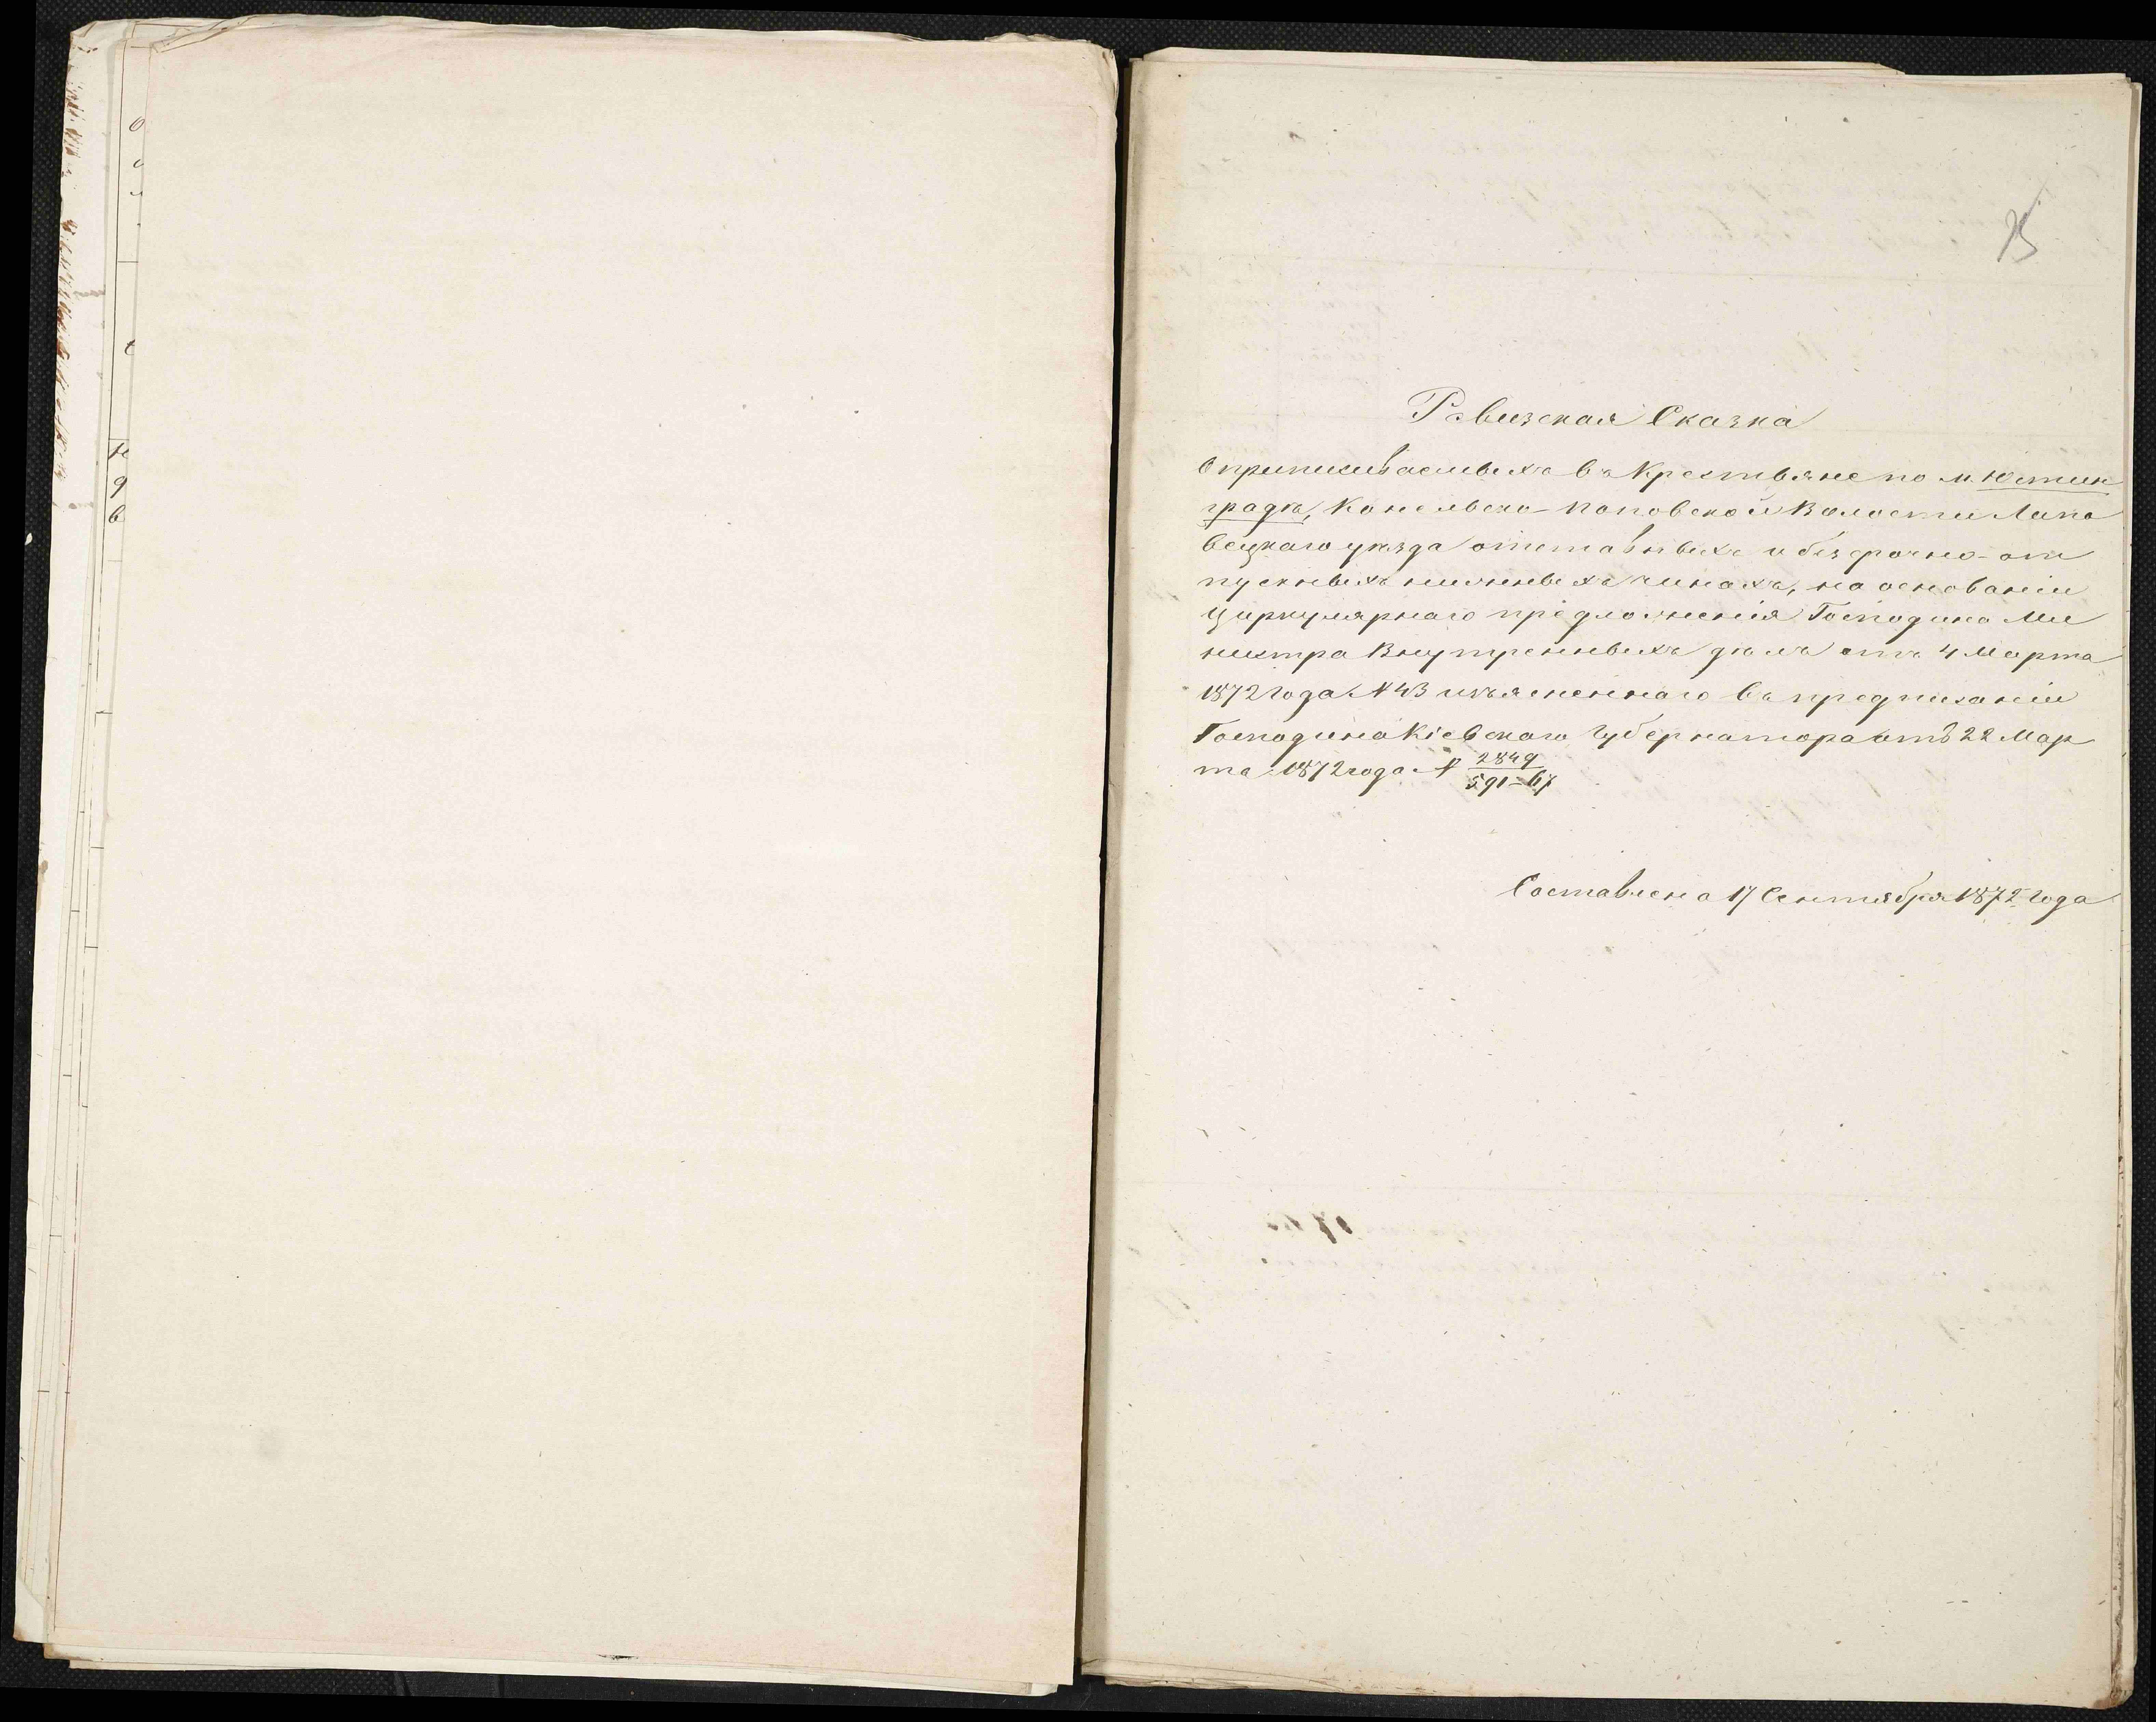 Ревизская Сказка
О приписываемыхъ въ Крестьяне по м. Юстин
градъ, Конельско-Поповской Волости Липо
вецкаго уѣзда отставныхъ и безсрочно-от
пускныхъ нижныхъ чинахъ, на основаніи
Циркулярнаго предложенія Господина Ми
нистра Внутренныхъ дѣлъ отъ 4 Марта
1872 года № 43 изъясненнаго въ предписаніи
Господина Кіевскаго Губернатора отъ 22 Мар
та 1872 года № 2849
591-67
Составлена 17 Сентября 1872 года